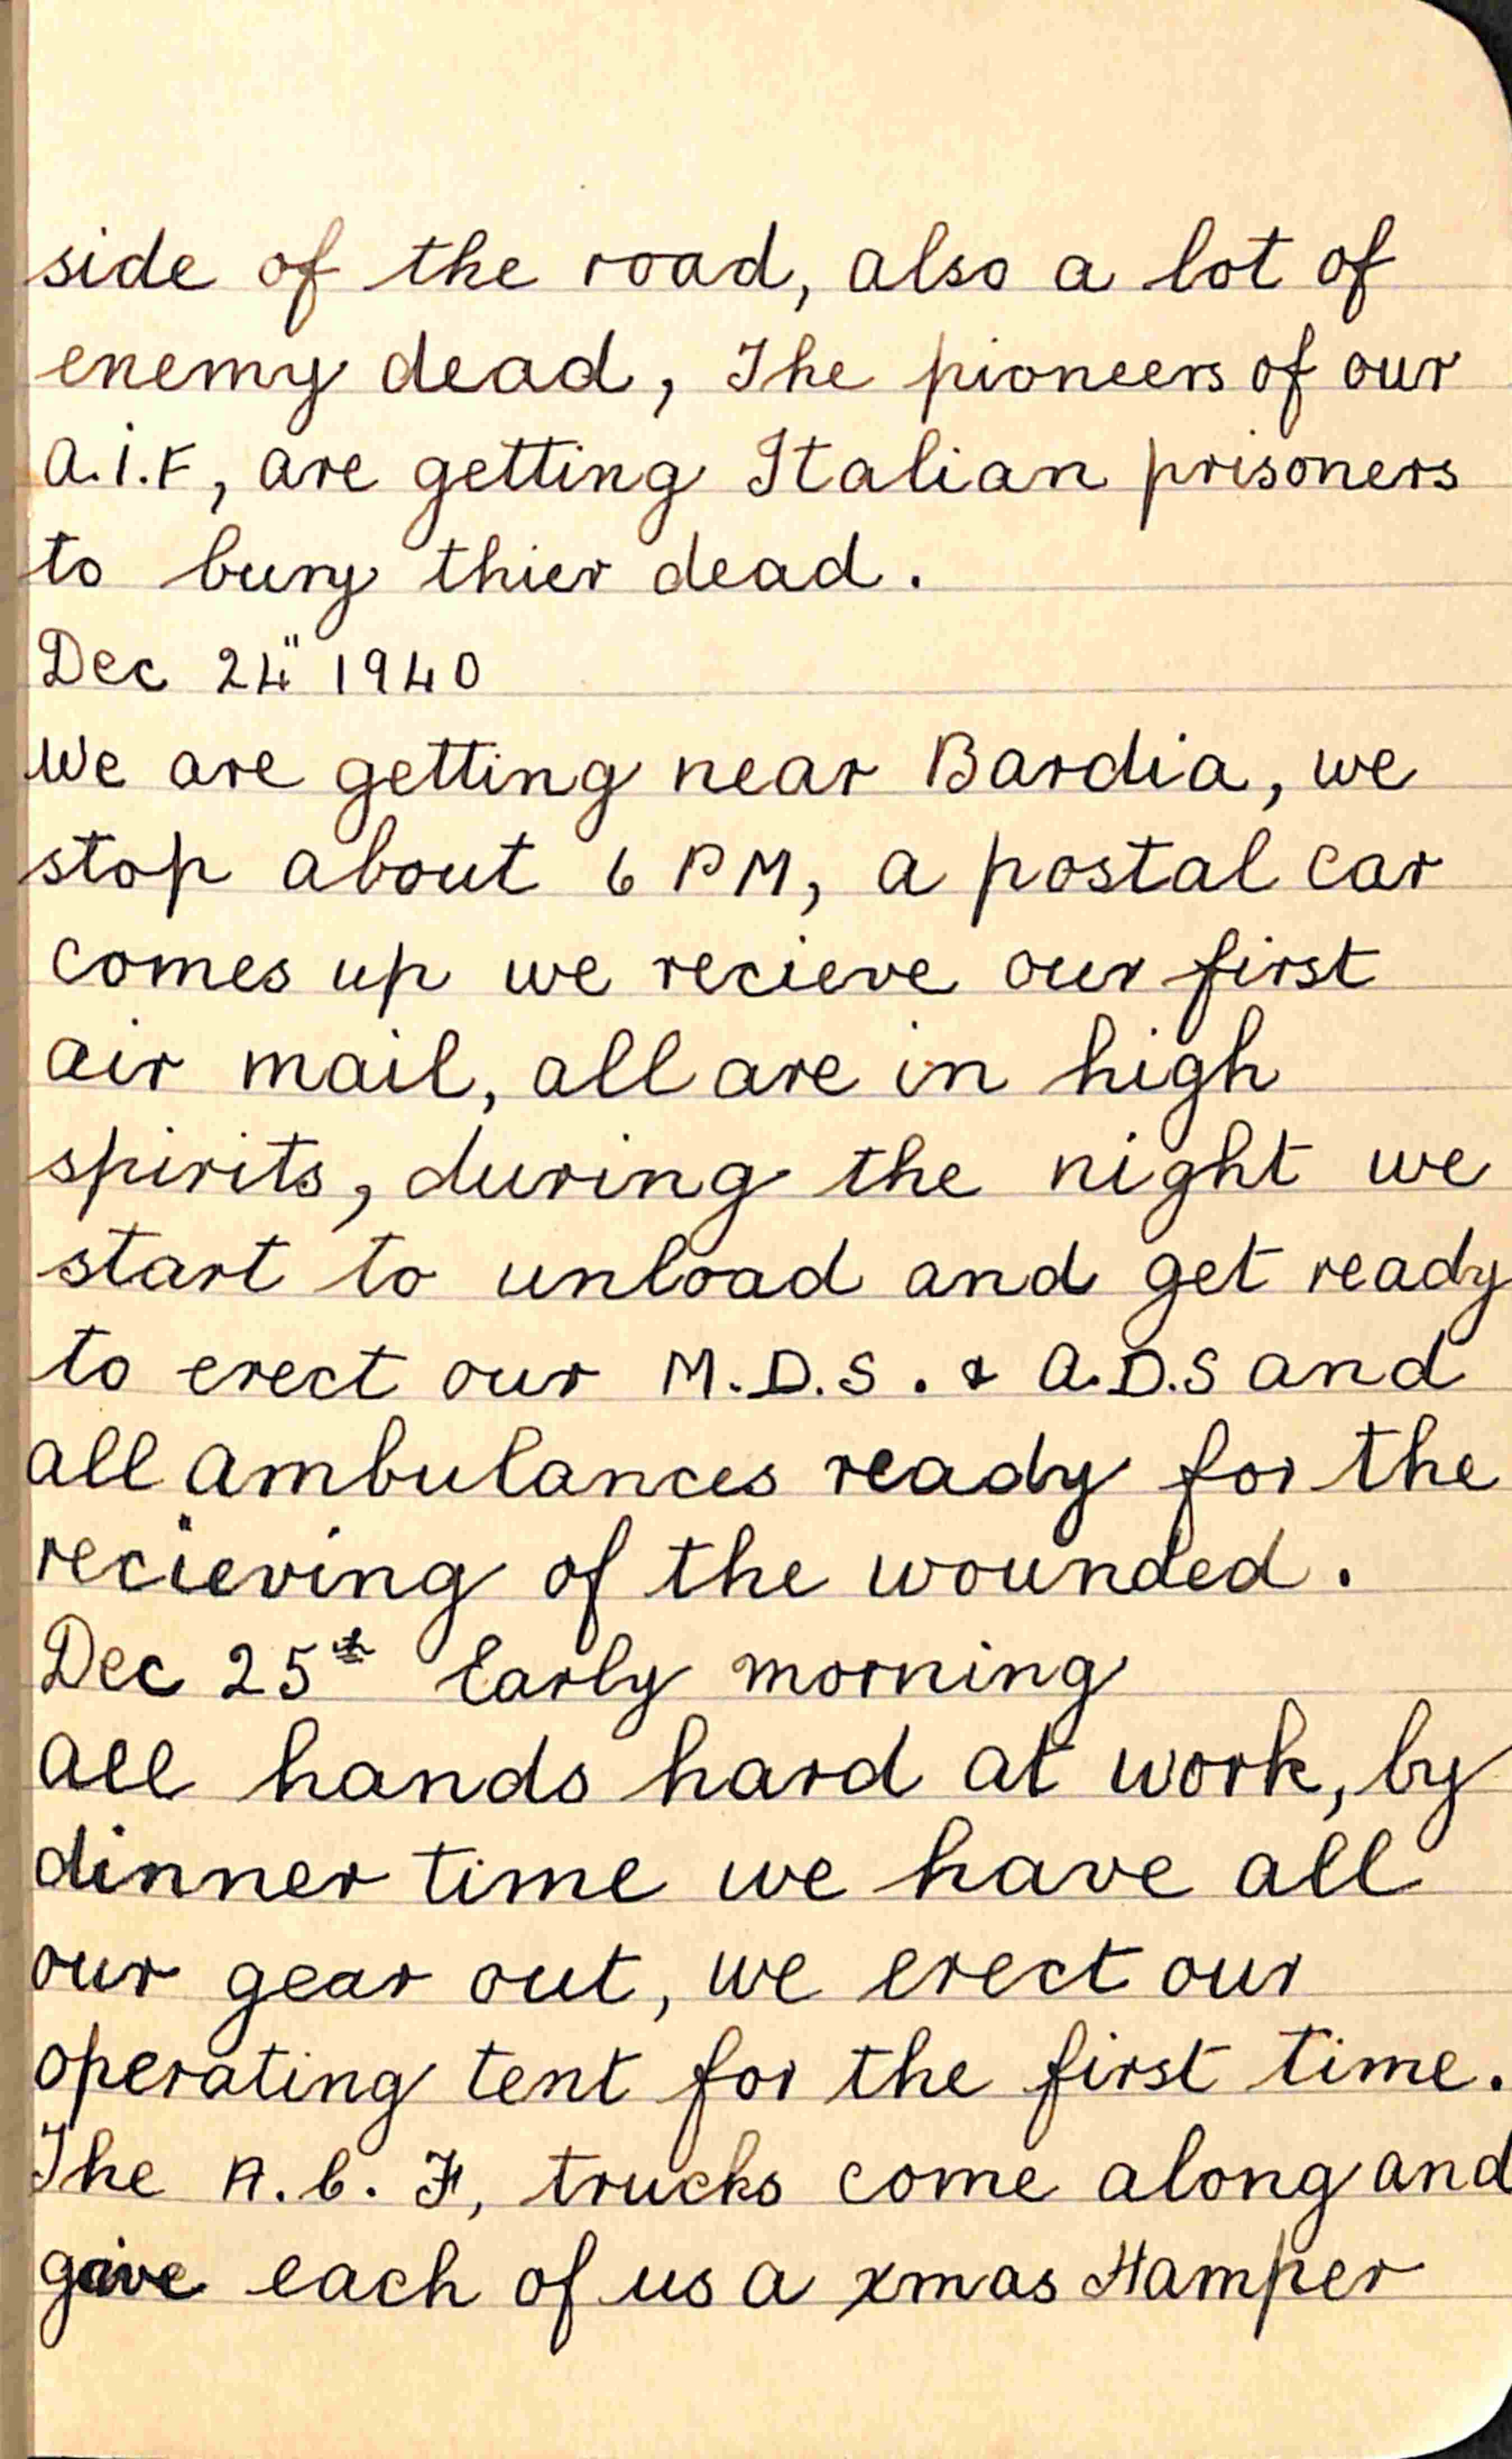 side of the road, also a lot of
enemy dead, The pioneers of our
A.I.F, are getting Italian prisoners
to bury thier dead.
Dec 24" 1940
We are getting near Bardia, we
stop about 6 PM, a postal car
comes up we recieve our first
air mail, all are in high
spirits, during the night we
start to unload and get ready
to erect our M.D.S. & A.D.S and
all ambulances ready for the
recieving of the wounded.
Dec 25th Early morning
All hands hard at work, by
dinner time we have all
our gear out, we erect our
operating tent for the first time.
The A.C.F, trucks come along and
give each of us a xmas Hamper